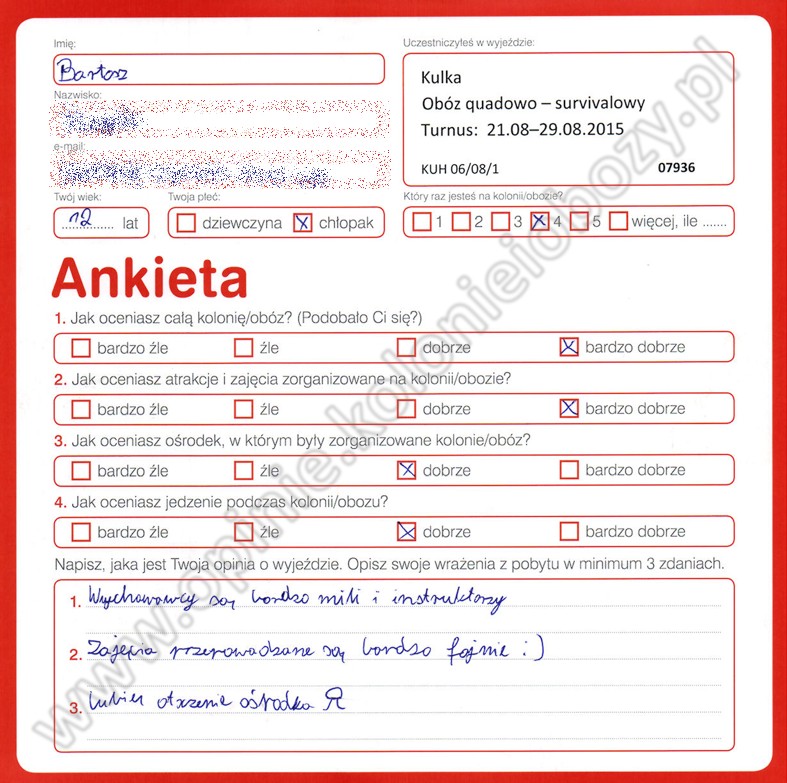 Imię:
Bartosz
Nazwisko:
e-mail:
Twój wiek:
12 lat
Twoja płeć:
dziewczyna chłopak
Uczestniczyłeś w wyjeździe:
Kulka
Obóz quadowo – survivalowy
Turnus: 21.08–29.08.2015
KUH 06/08/1 07936
Który raz jesteś na kolonii/obozie?
1 2 3 4 5 więcej, ile .......
Ankieta
1. Jak oceniasz całą kolonię/obóz? (Podobało Ci się?)
bardzo źle źle dobrze bardzo dobrze
2. Jak oceniasz atrakcje i zajęcia zorganizowane na kolonii/obozie?
bardzo źle źle dobrze bardzo dobrze
3. Jak oceniasz ośrodek, w którym były zorganizowane kolonie/obóz?
bardzo źle źle dobrze bardzo dobrze
4. Jak oceniasz jedzenie podczas kolonii/obozu?
bardzo źle źle dobrze bardzo dobrze
Napisz, jaka jest Twoja opinia o wyjeździe. Opisz swoje wrażenia z pobytu w minimum 3 zdaniach.
1. Wychowawcy są bardzo mili i instruktorzy
2. Zajęcia przeprowadzane są bardzo fajnie :)
3. Lubię otoczenie ośrodka
www.opinie.kolonieiobozy.pl